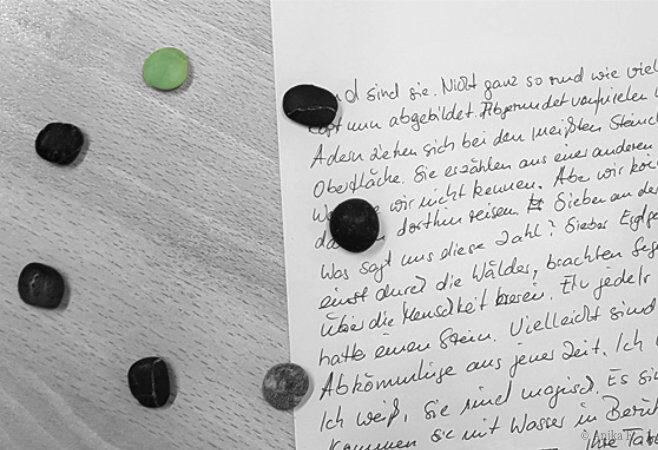 sind sie. Nicht ganz so rund wie viel
nun abgebildet. Abgerundet
Adern ziehen sich bei den meisten Steinch
Oberfläche. Sie erzählen aus einer anderen
wir nicht kennen. Aber wir kön
dorthin reisen. Sieben an der
Was sagt uns diese Zahl? Sieben
einst durch die Wälder, brachten Seg
über die Menschheit herein. Etv jeder
hatte einen Stein. Vielleicht sind
Abkömmlinge aus jener Zeit. Ich
Ich weiß, sie sind magisch. Es si
Kommen sie mit Wasser in Berüh
Ihre
© Anika